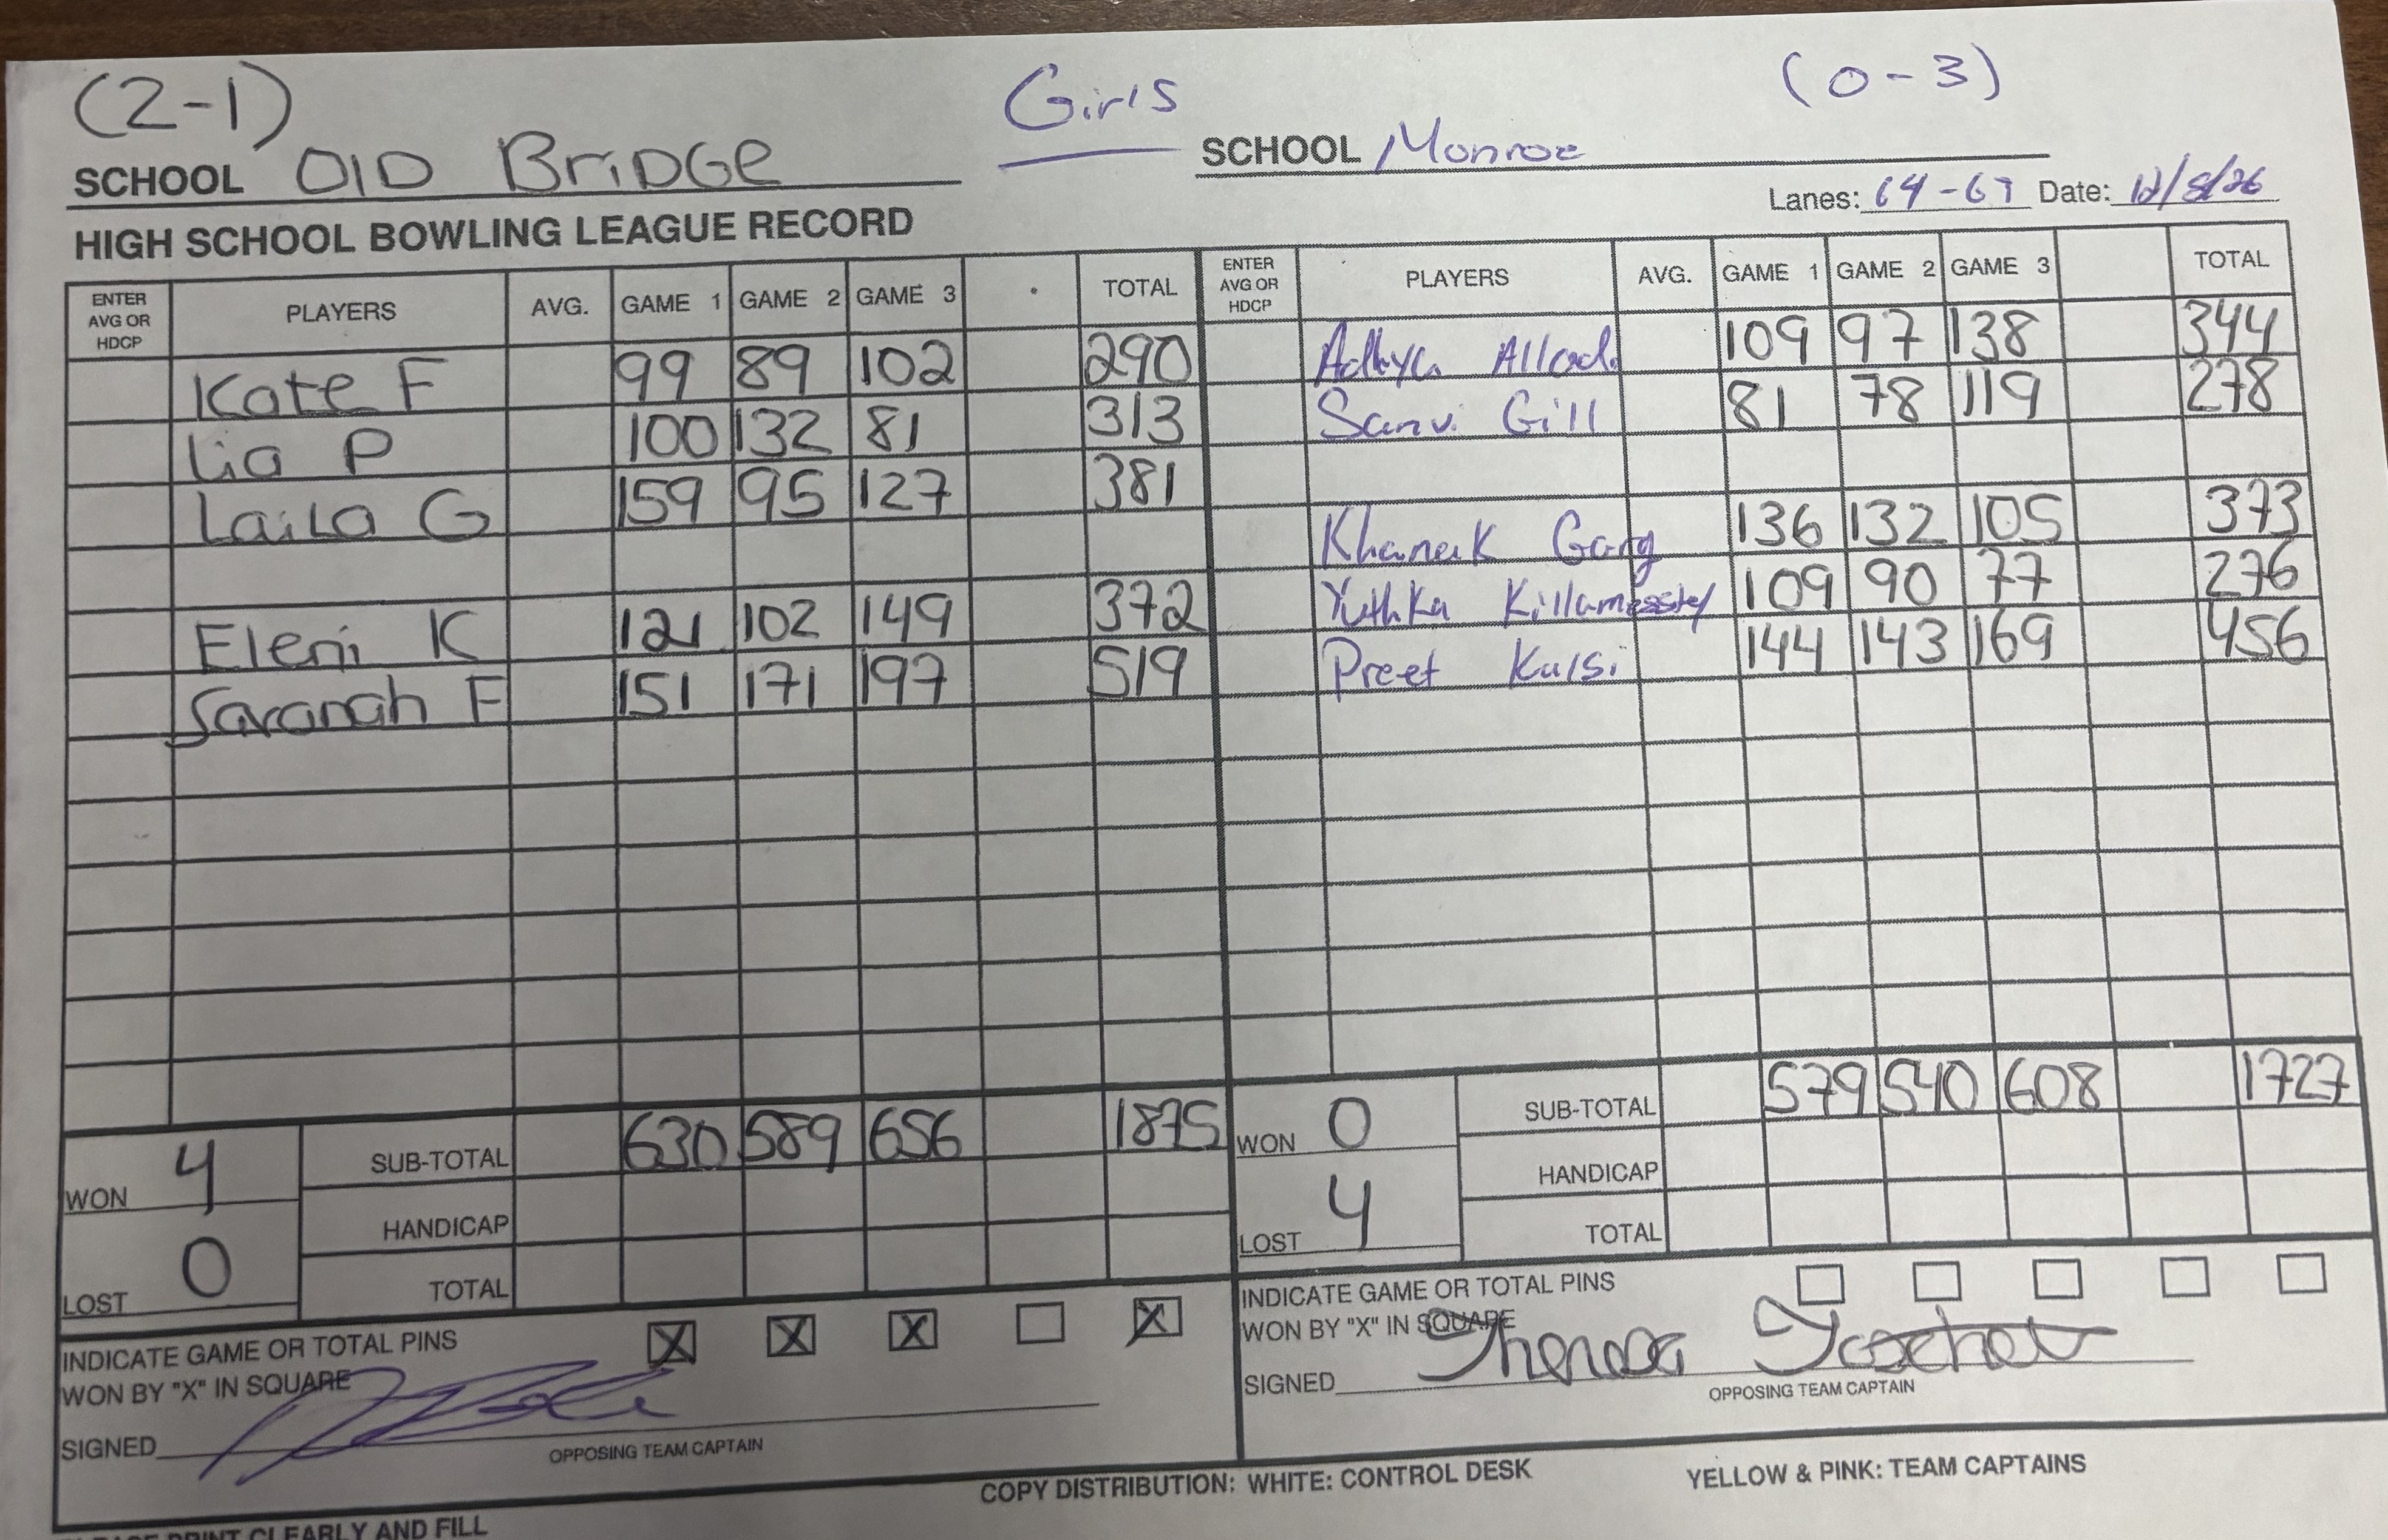 (2-1) Girls (0-3)
SCHOOL OlD BriDGe SCHOOL Monroe
Lanes: 64-67 Date: 12/8/26
HIGH SCHOOL BOWLING LEAGUE RECORD
ENTER AVG OR HDCP PLAYERS AVG. GAME 1 GAME 2 GAME 3 TOTAL ENTER AVG OR HDCP PLAYERS AVG. GAME 1 GAME 2 GAME 3 TOTAL
Kate F 99 89 102 290 Adhya 109 97 138 344
Lia P 100 132 81 313 Sanvi Gill 81 78 119 278
Laila G 159 95 127 381
Khanak Garg 136 132 105 373
Eleni K 121 102 149 372 109 90 77 276
Savanah F 151 171 197 519 Preet Kalsi 144 143 169 456
WON 4 SUB-TOTAL 630 589 656 1875 WON 0 SUB-TOTAL 579 540 608 1727
HANDICAP HANDICAP
LOST 0 TOTAL LOST 4 TOTAL
INDICATE GAME OR TOTAL PINS X X X X INDICATE GAME OR TOTAL PINS
WON BY "X" IN SQUARE WON BY "X" IN SQUARE
SIGNED SIGNED Theresa
OPPOSING TEAM CAPTAIN OPPOSING TEAM CAPTAIN
COPY DISTRIBUTION: WHITE: CONTROL DESK YELLOW & PINK: TEAM CAPTAINS
PRINT CLEARLY AND FILL